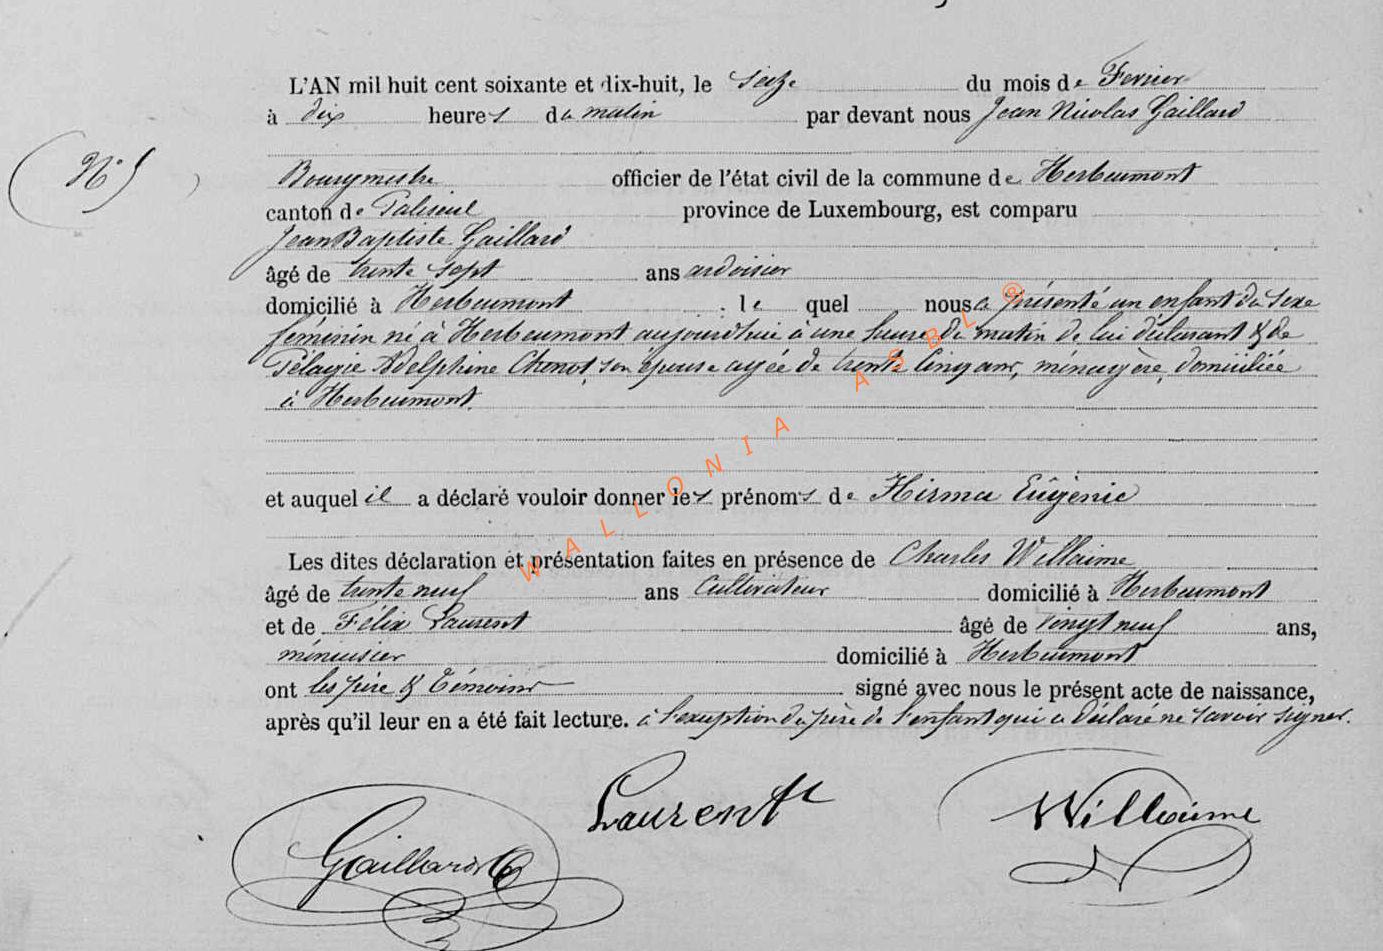 L'AN mil huit cent soixante et dix-huit, le Seize du mois de Fevrier
à dix heures du matin par devant nous Jean Nicolas Gaillard
N° 5
Bourgmestre officier de l'état civil de la commune de Herbeumont
canton de Paliseul province de Luxembourg, est comparu
Jean Baptiste Gaillard
âgé de trente sept ans ardoisier
domicilié à Herbeumont le quel nous a présenté un enfant du sexe
féminin né à Herbeumont aujourdhui à une heure du matin de lui déclarant & de
Pélagie Adelphine Chenot, son épouse agée de trente cinq ans, ménagère, domiciliée
à Herbeumont.
et auquel il a déclaré vouloir donner les prénoms de Hirma Eugènie
Les dites déclaration et présentation faites en présence de Charles Willaime
âgé de trente neuf ans Cultivateur domicilié à Herbeumont
et de Félix Laurent âgé de vingt neuf ans,
ménuisier domicilié à Herbeumont
ont les père & Témoins signé avec nous le présent acte de naissance,
après qu'il leur en a été fait lecture. à l'exception du père de l'enfant qui a déclaré ne savoir signer.
Gaillard Laurent Willaime
WALLONIA ASBL ®